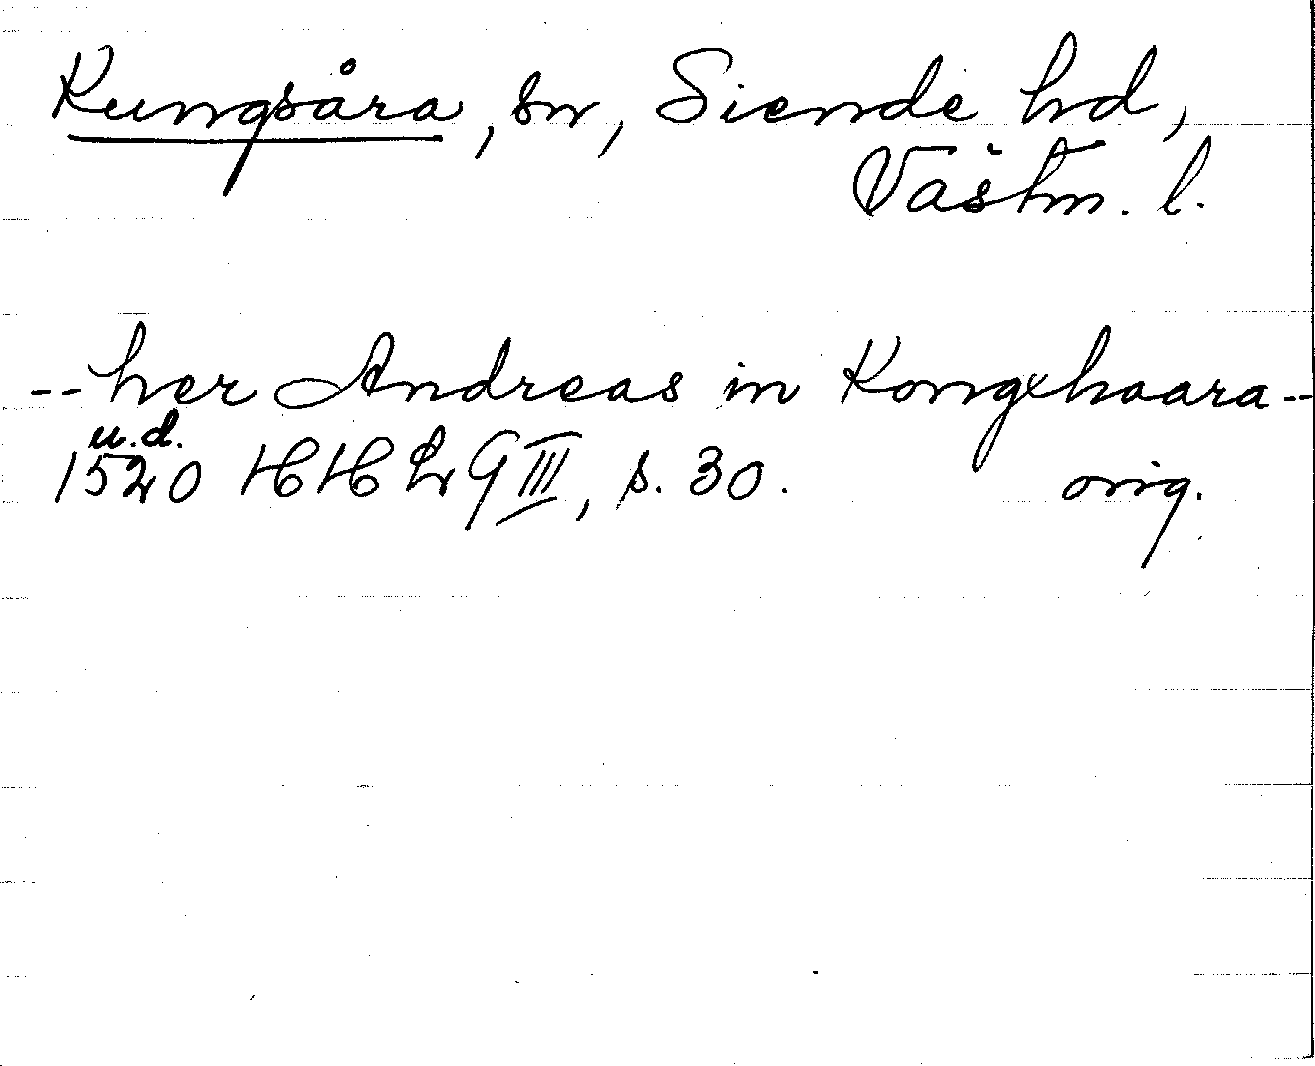 Kungsåra, sn, Siende hd,
Västm. l.
-- her Andreas in Kongxhaara --
u.d.
1520 HH 29 III, s. 30. orig.